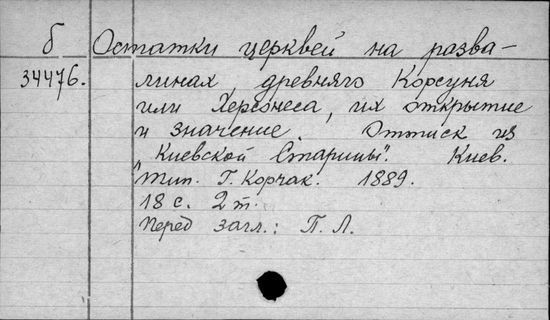 б Остатки церквей на разва-
34476. линах древняго Корсуня
или Херсонеса, их открытие
и значение. Оттиск из
„Киевской Старины". Киев.
Тип. Г. Корчак. 1889.
18 с. 2 т.
Перед загл.: П. Л.